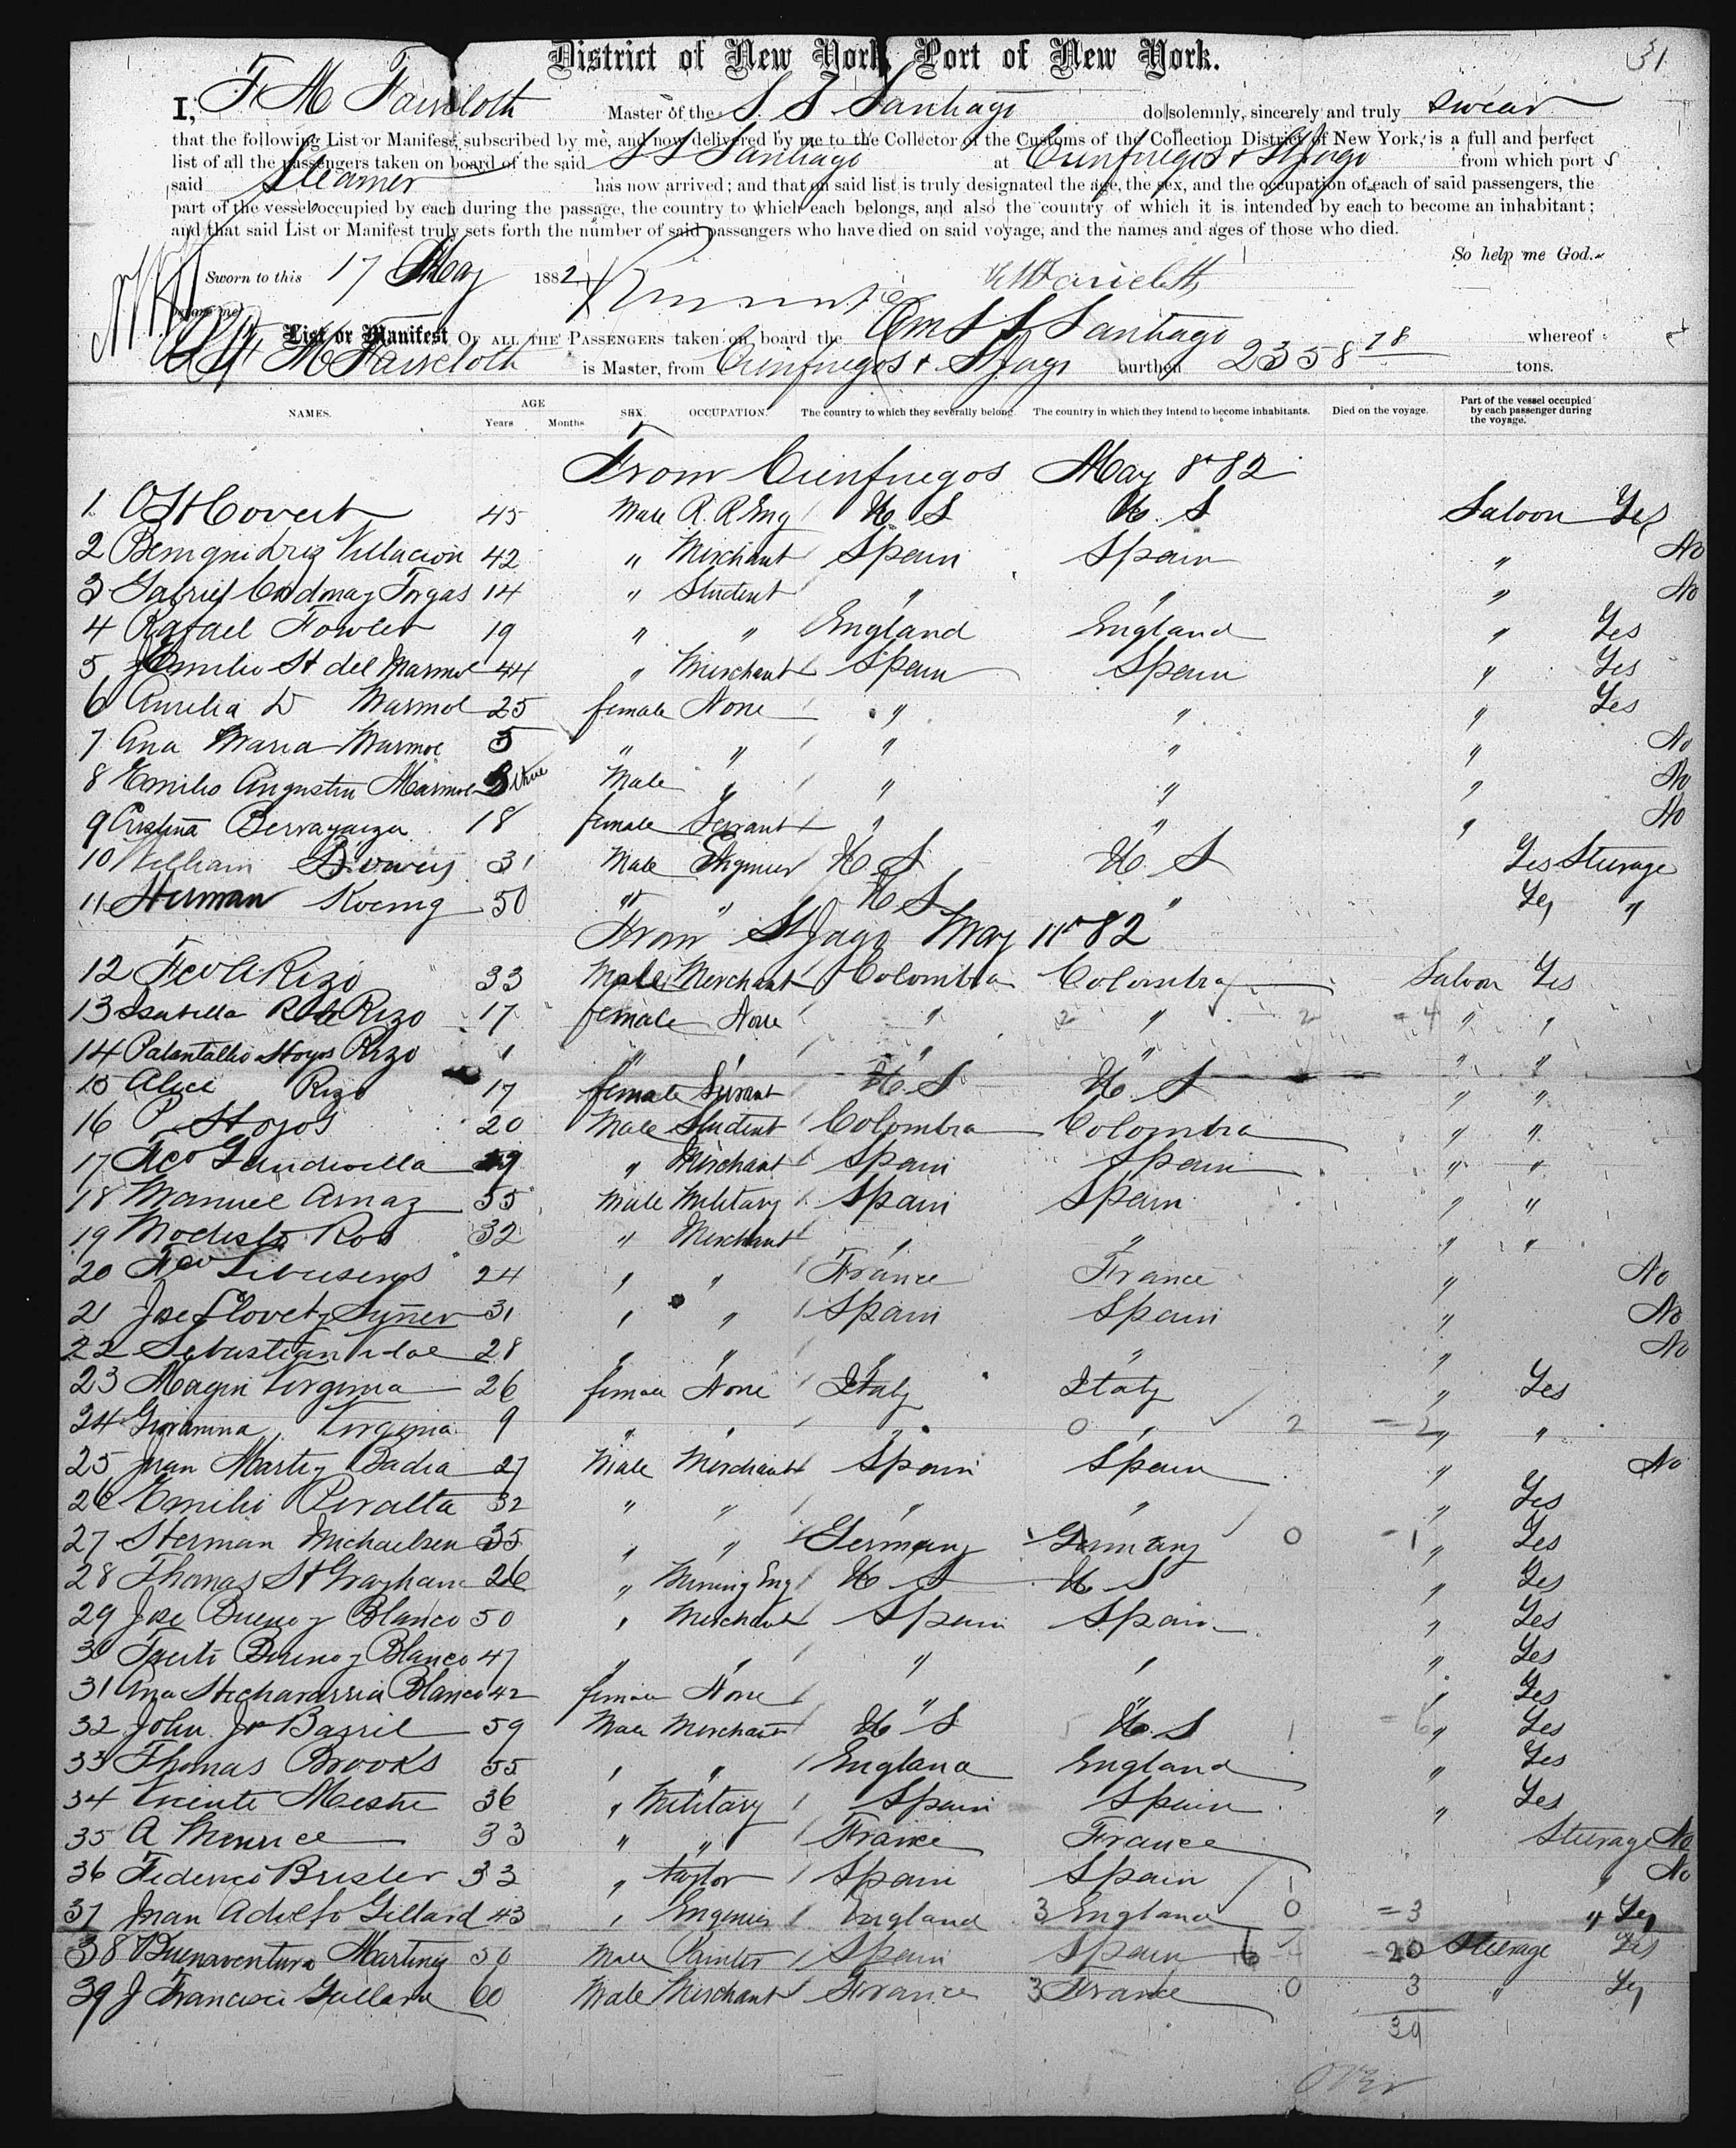 31
District of New York, Port of New York.
I, F M Faircloth Master of the S. S Santiago do solemnly, sincerely and truly swear
that the following List or Manifest, subscribed by me, and now delivered by me to the Collector of the Customs of the Collection District of New York, is a full and perfect
list of all the passengers taken on board of the said S S Santiago at Cienfuegos & St Jago from which port
said Steamer has now arrived; and that on said list is truly designated the age, the sex, and the occupation of each of said passengers, the
part of the vessel occupied by each during the passage, the country to which each belongs, and also the country of which it is intended by each to become an inhabitant;
and that said List or Manifest truly sets forth the number of said passengers who have died on said voyage, and the names and ages of those who died.
So help me God.
Sworn to this 17 May 1882 F M Faircloth
before me
List or Manifest OF ALL THE PASSENGERS taken on board the Am S S Santiago whereof
F M Faircloth is Master, from Cienfuegos & St Jago burthen 2358 78 tons.
NAMES. AGE Years Months SEX. OCCUPATION. The country to which they severally belong. The country in which they intend to become inhabitants. Died on the voyage. Part of the vessel occupied by each passenger during the voyage.
From Cienfuegos May 8th 82
1 O H Covert 45 Male R. R Eng U. S U. S Saloon Yes
2 Villacion 42 " Merchant Spain Spain " No
3 Gabriel Cadmay Forgas 14 " Student " " " No
4 Rafael Fowler 19 " " England England " Yes
5 Emilio H del Marmol 44 " Merchant Spain Spain " Yes
6 Amelia D Marmol 25 female None " " " Yes
7 Ana Maria Marmol 5 " " " " " No
8 Emilio Augustin Marmol 3 three Male " " " " No
9 Cristina 18 female Servant " " " No
10 William Bowers 31 Male Engineer U. S U. S Yes Steerage
11 Herman Koenig 50 " " U S " Yes "
From St Jago May 11th 82
12 Fco A Rizo 33 Male Merchant Colombia Colombia Saloon Yes
13 Isabella Rizo 17 female None " 2 " 2 = 4 " "
14 Hoyos Rizo 1 " " " " " "
15 Alice Rizo 17 female Servant U. S U. S " "
16 P Hoyos 20 Male Student Colombia Colombia " "
17 Fco " Merchant Spain Spain " "
18 Manuel Arnaz 55 Male Military Spain Spain " "
19 Modesto Ros 32 " Merchant " " " "
20 Fco 24 " " France France " No
21 Jose Llovet y Suñer 31 " " Spain Spain " No
22 Sebastian 28 " " " " " No
23 Magin Virginia 26 female None Italy Italy " Yes
24 Giovannina Virginia 9 " " " 0 " 2 = 2 " "
25 Juan Marti y Badia 27 Male Merchant Spain Spain " No
26 Emilio Peralta 32 " " " " " Yes
27 Herman Michaelsen 35 " " Germany Germany 0 - 1 " Yes
28 Thomas H Graham 26 " Mining Eng U S U S " Yes
29 Jose Bueno y Blanco 50 " Merchant Spain Spain " Yes
30 Bueno y Blanco 47 " " " " " Yes
31 Ana Blanco 42 female None " " " Yes
32 John Jn Bazzil 59 Male Merchant U S 5 U. S 1 = 6 " Yes
33 Thomas Brooks 55 " " England England " Yes
34 Vicente Mestre 36 " Military Spain Spain " Yes
35 A 33 " " France France Steerage No
36 Federico Brisler 33 " Taylor Spain Spain " No
37 Juan Adolfo Gillard 43 " Engineer England 3 England 0 = 3 " Yes
38 Buenaventura Martiney 50 Male Painter Spain Spain 16 4 = 20 Steerage Yes
39 J Francisco 60 Male Merchant France 3 France 0 3 " Yes
39
over